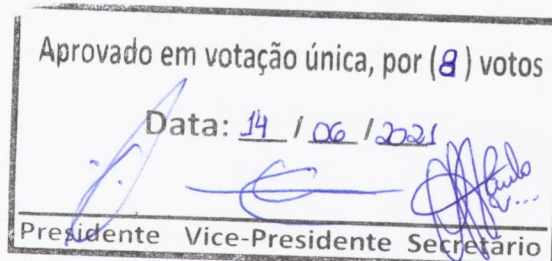 Aprovado em votação única, por (8) votos
Data: 14 / 06 / 2021
Presidente Vice-Presidente Secretário